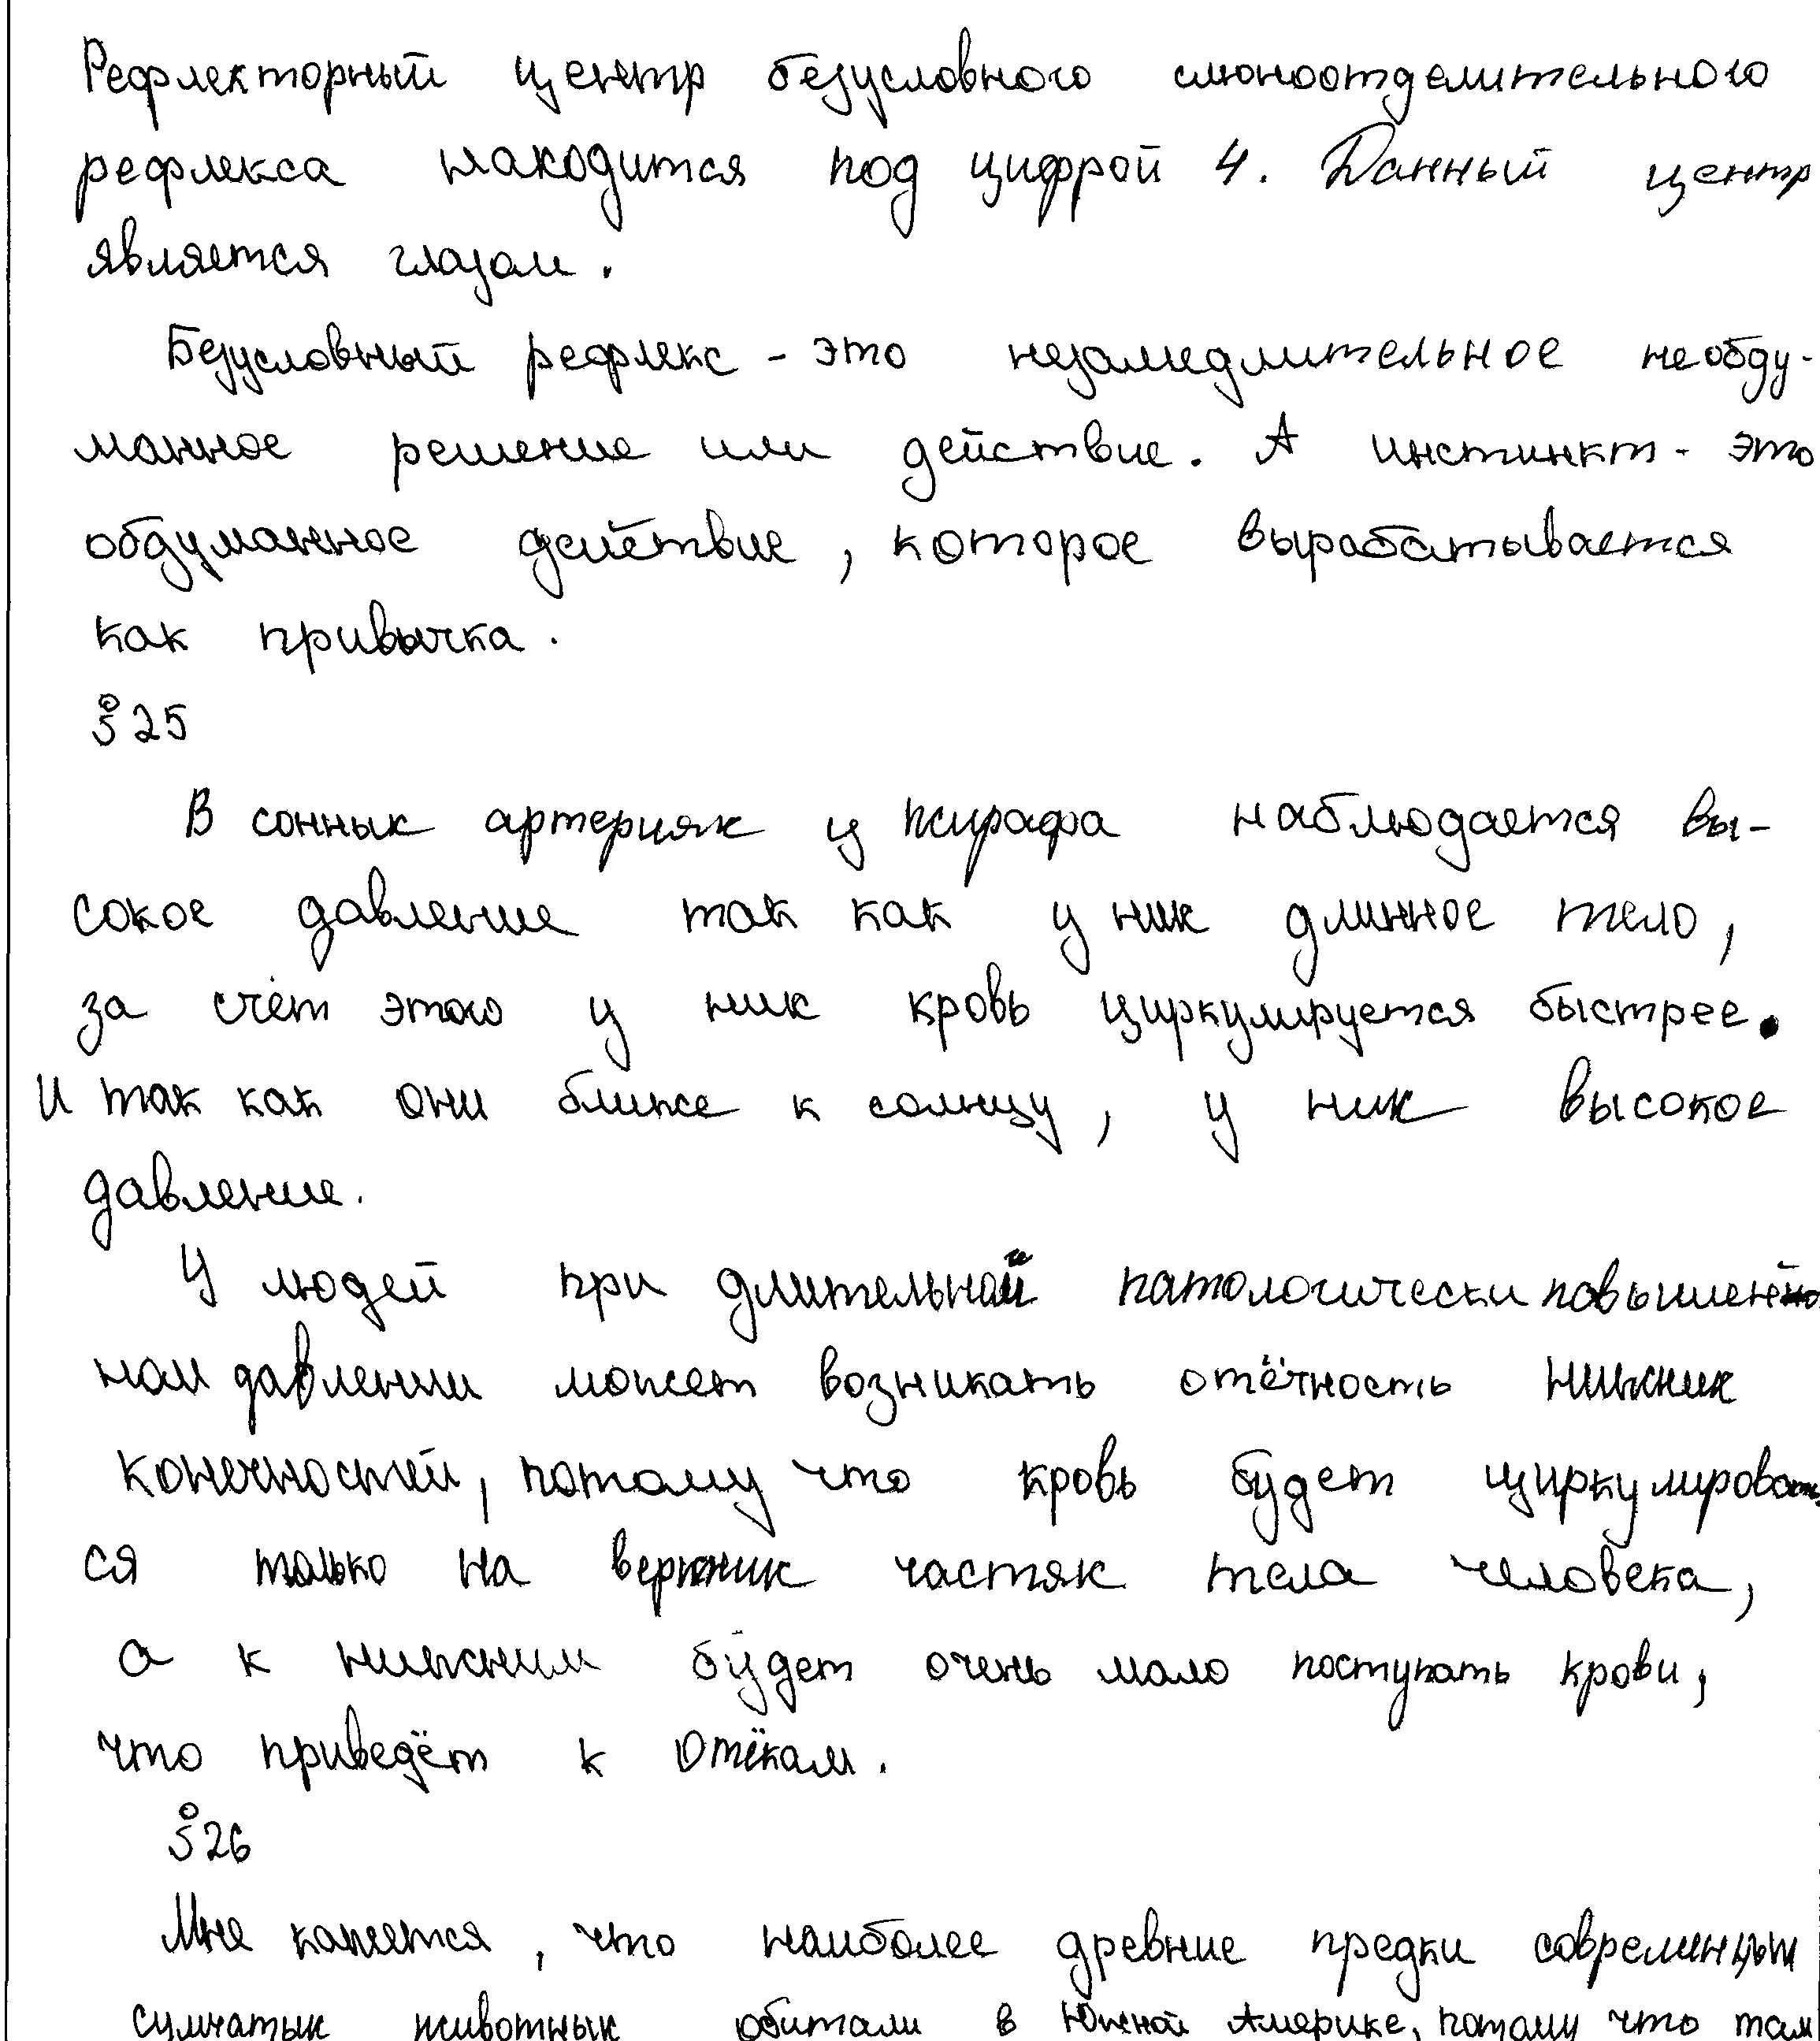 Рефлекторный центр безусловного слюноотделительного
рефлекса находится под цифрой 4. Данный центр
является глазом.
Безусловный рефлекс - это незамедлительное необду-
манное решение или действие. А инстинкт - это
обдуманное действие, которое вырабатывается
как привычка.
§ 25
В сонных артериях у жирафа наблюдается вы-
сокое давление так как у них длинное тело,
за счёт этого у них кровь циркулируется быстрее.
И так как они ближе к солнцу, у них высокое
давление.
У людей при длительной патологически повышен
ном давлении может возникать отёчность нижних
конечностей, потому что кровь будет циркулировать
ся только на верхних частях тела человека,
а к нижним будет очень мало поступать крови,
что приведёт к отёкам.
§ 26
Мне кажется, что наиболее древние предки современных
сумчатых животных обитали в Южной Америке, потому что там